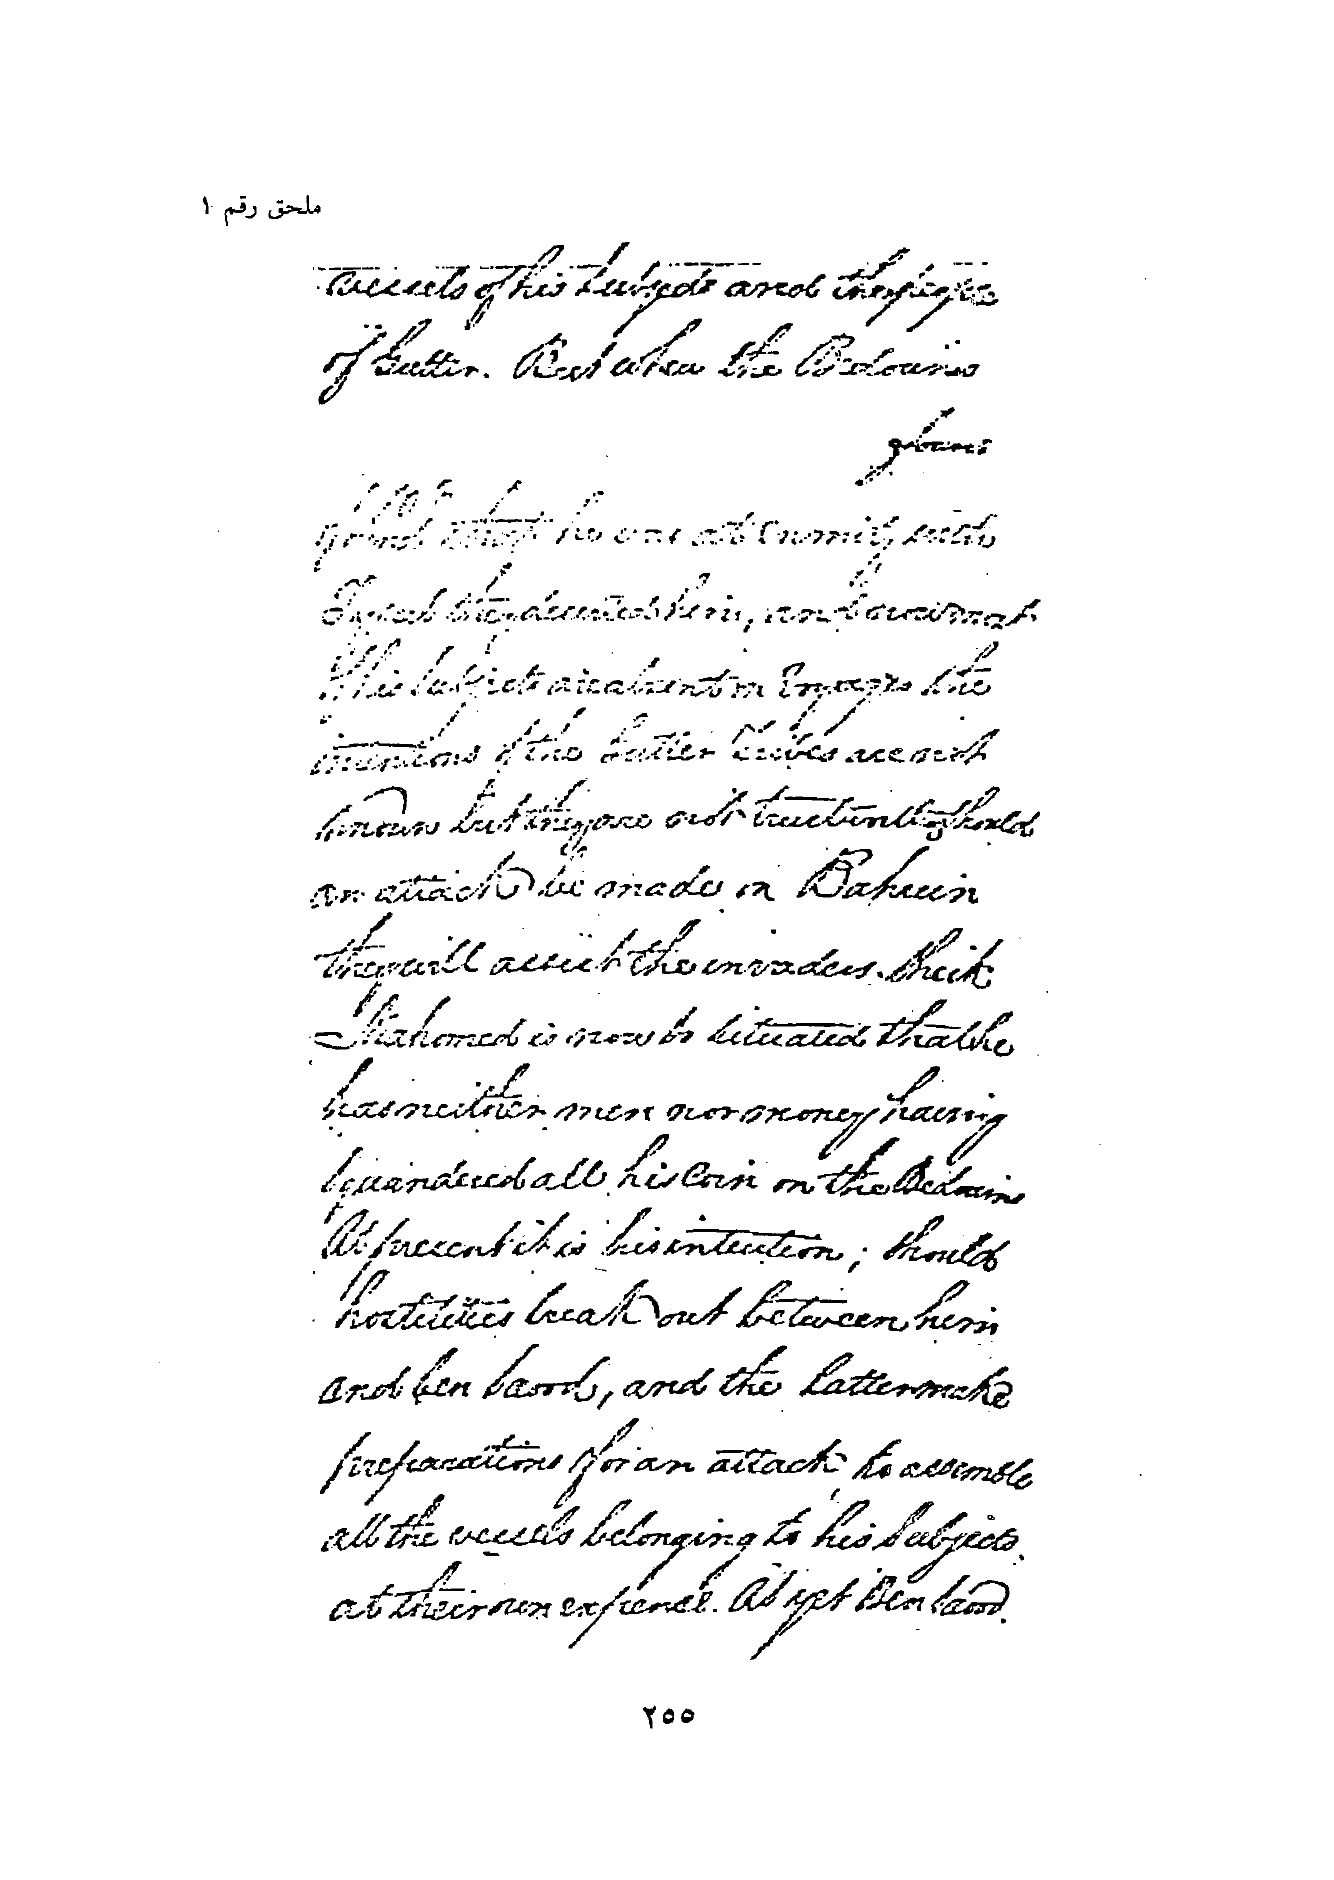 ملحق رقم ١
vessels of his subjects and the people
of Gutter. But when the Bedouins
found
found that he was at enmity with
they deserted him, and now that
his subjects are absent on voyages the
intentions of the Gutter Tribes are not
known but they are not trusted should
an attack be made on Bahrein
they will assist the invaders. Sheik
Mahomed is now so situated that he
has neither men nor money having
squandered all his Coin on the Bedouins
At present it is his intention; should
hostilities break out between him
and ben Saood, and the latter make
preparations for an attack, to assemble
all the vessels belonging to his subjects,
at their own expence. As yet Ben Saood.
٢٥٥